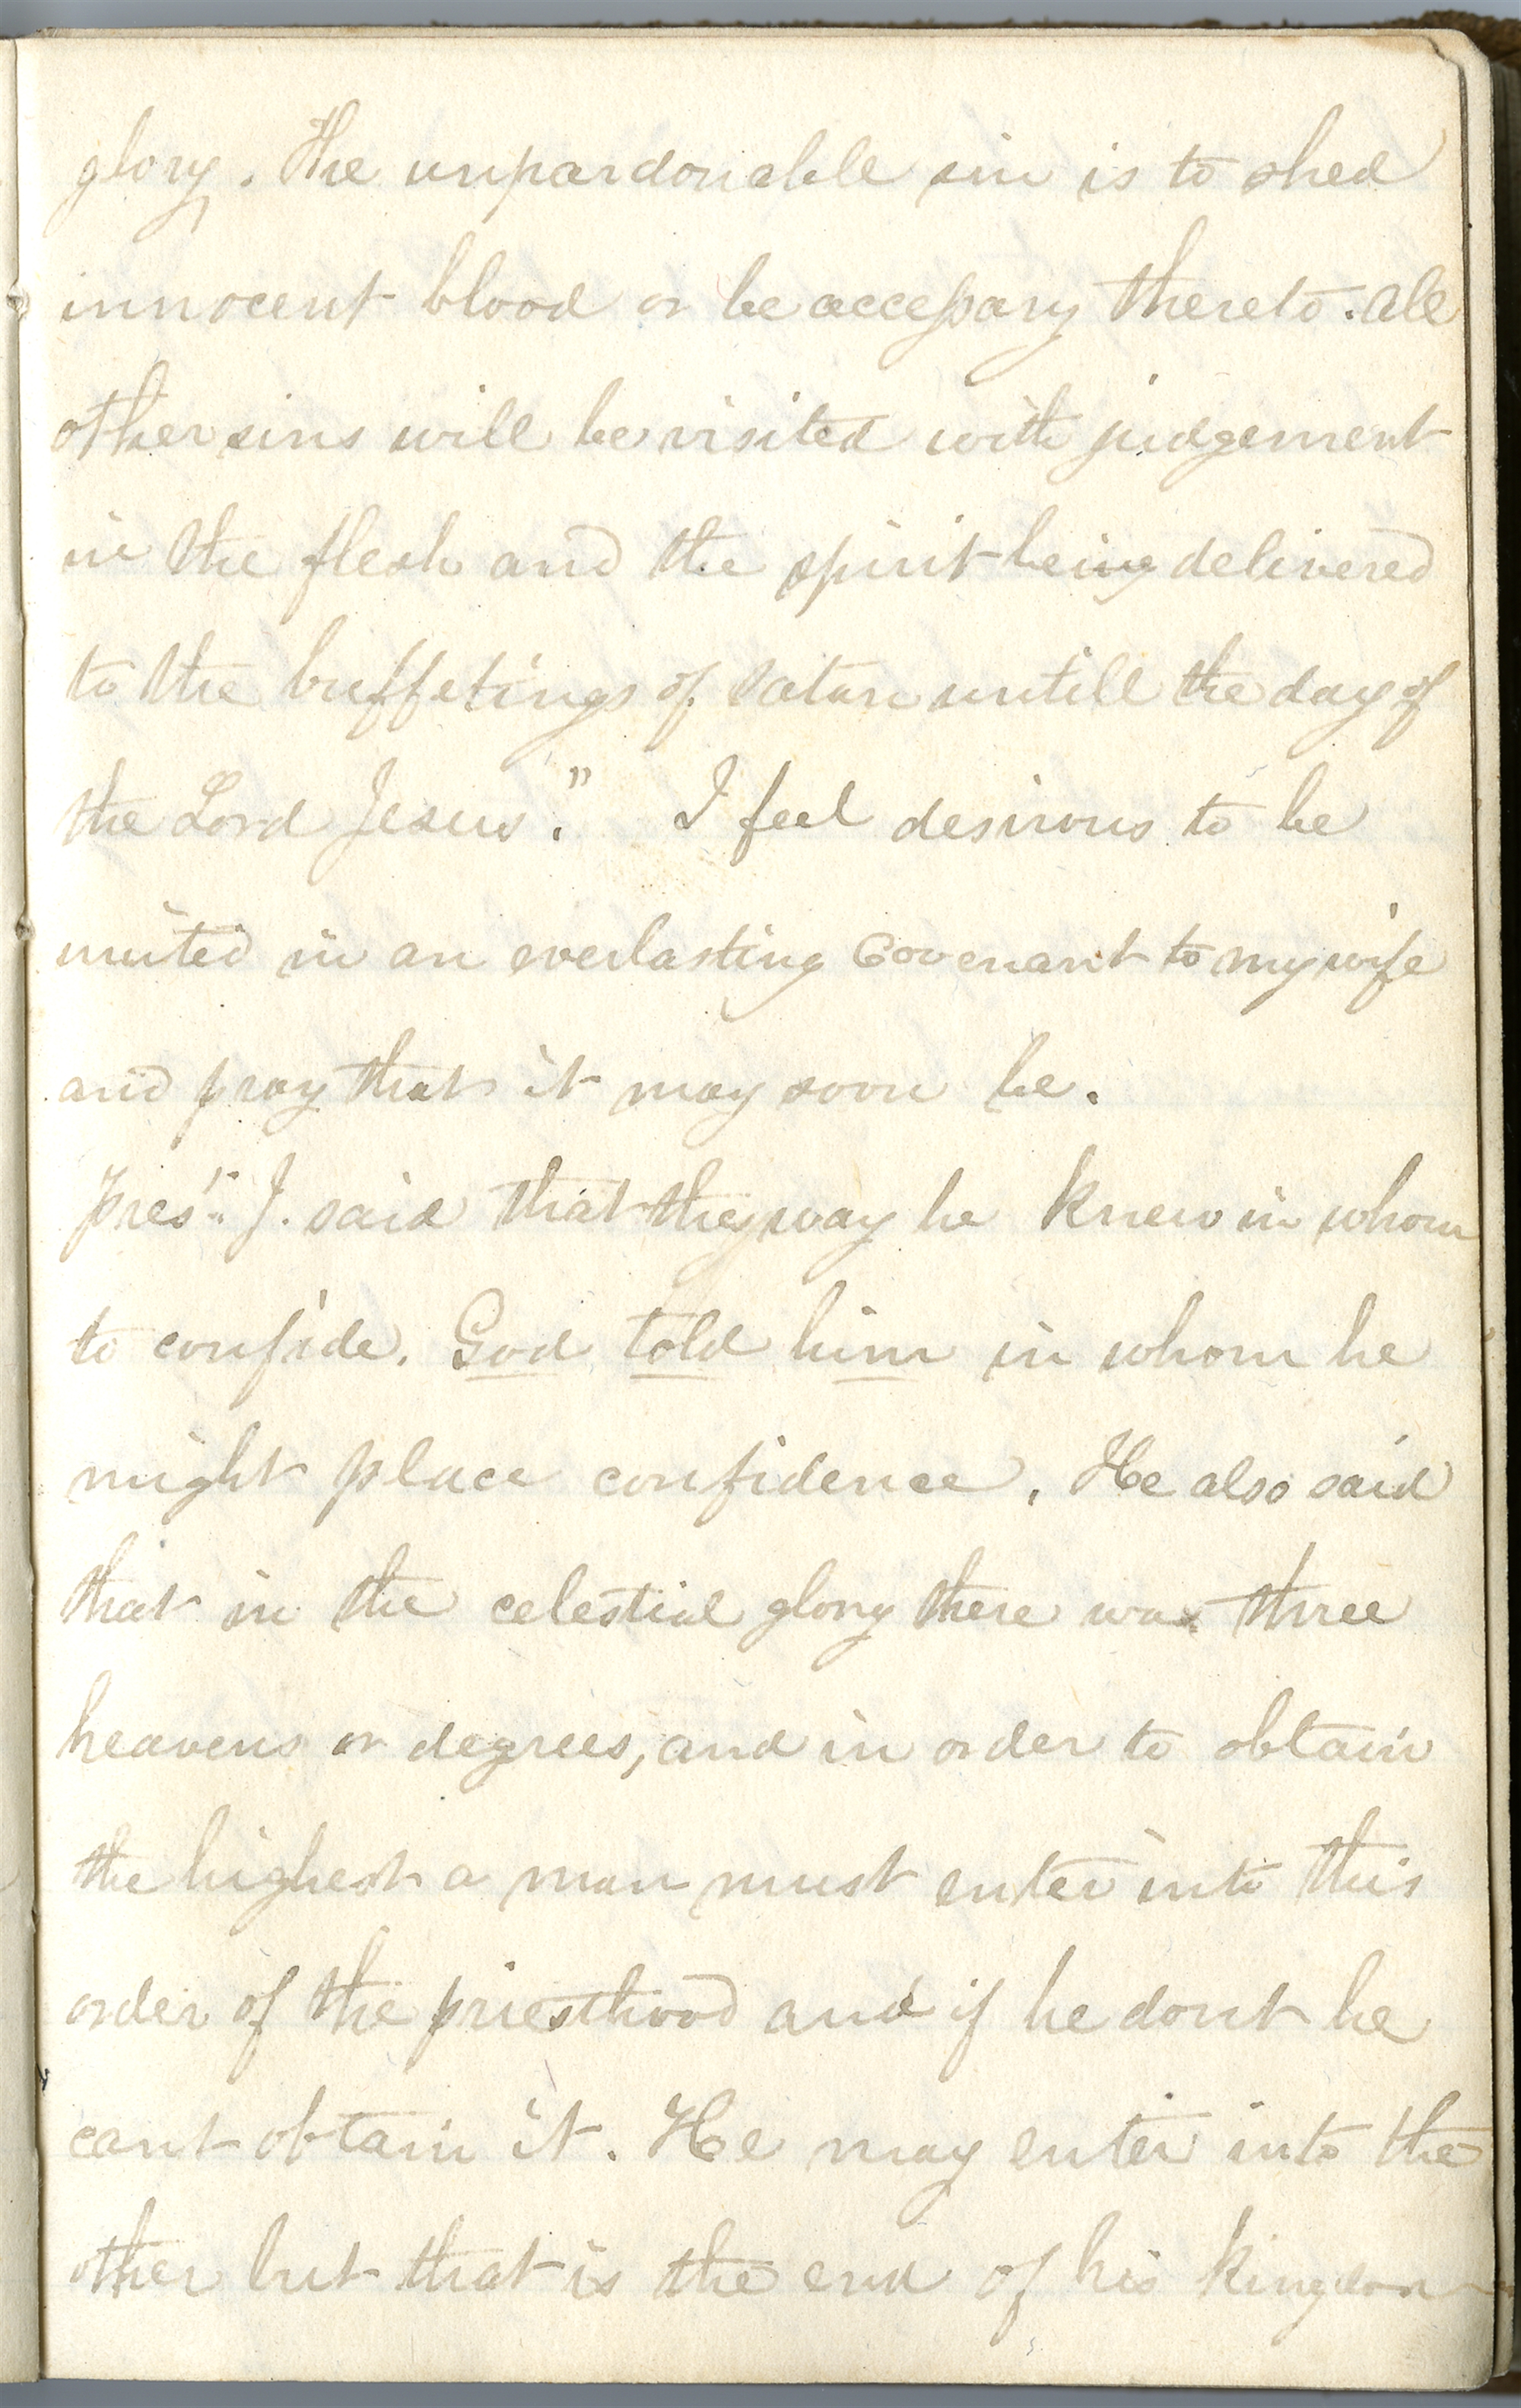 glory. The unpardonable sin is to shed
innocent blood or be accessary thereto. All
other sins will be visited with judgement
in the flesh and the spirit being delivered
to the buffetings of satan untill the day of
the Lord Jesus." I feel desirous to be
united in an everlasting Covenant to my wife
and pray that it may soon be.
Pres.t J. said that they way he knew in whom
to confide. God told him in whom he
might place confidence. He also said
that in the celestial glory there was three
heavens or degrees, and in order to obtain
the highest a man must enter into this
order of the priesthood and if he dont he
cant obtain it. He may enter into the
other but that is the end of his kingdom